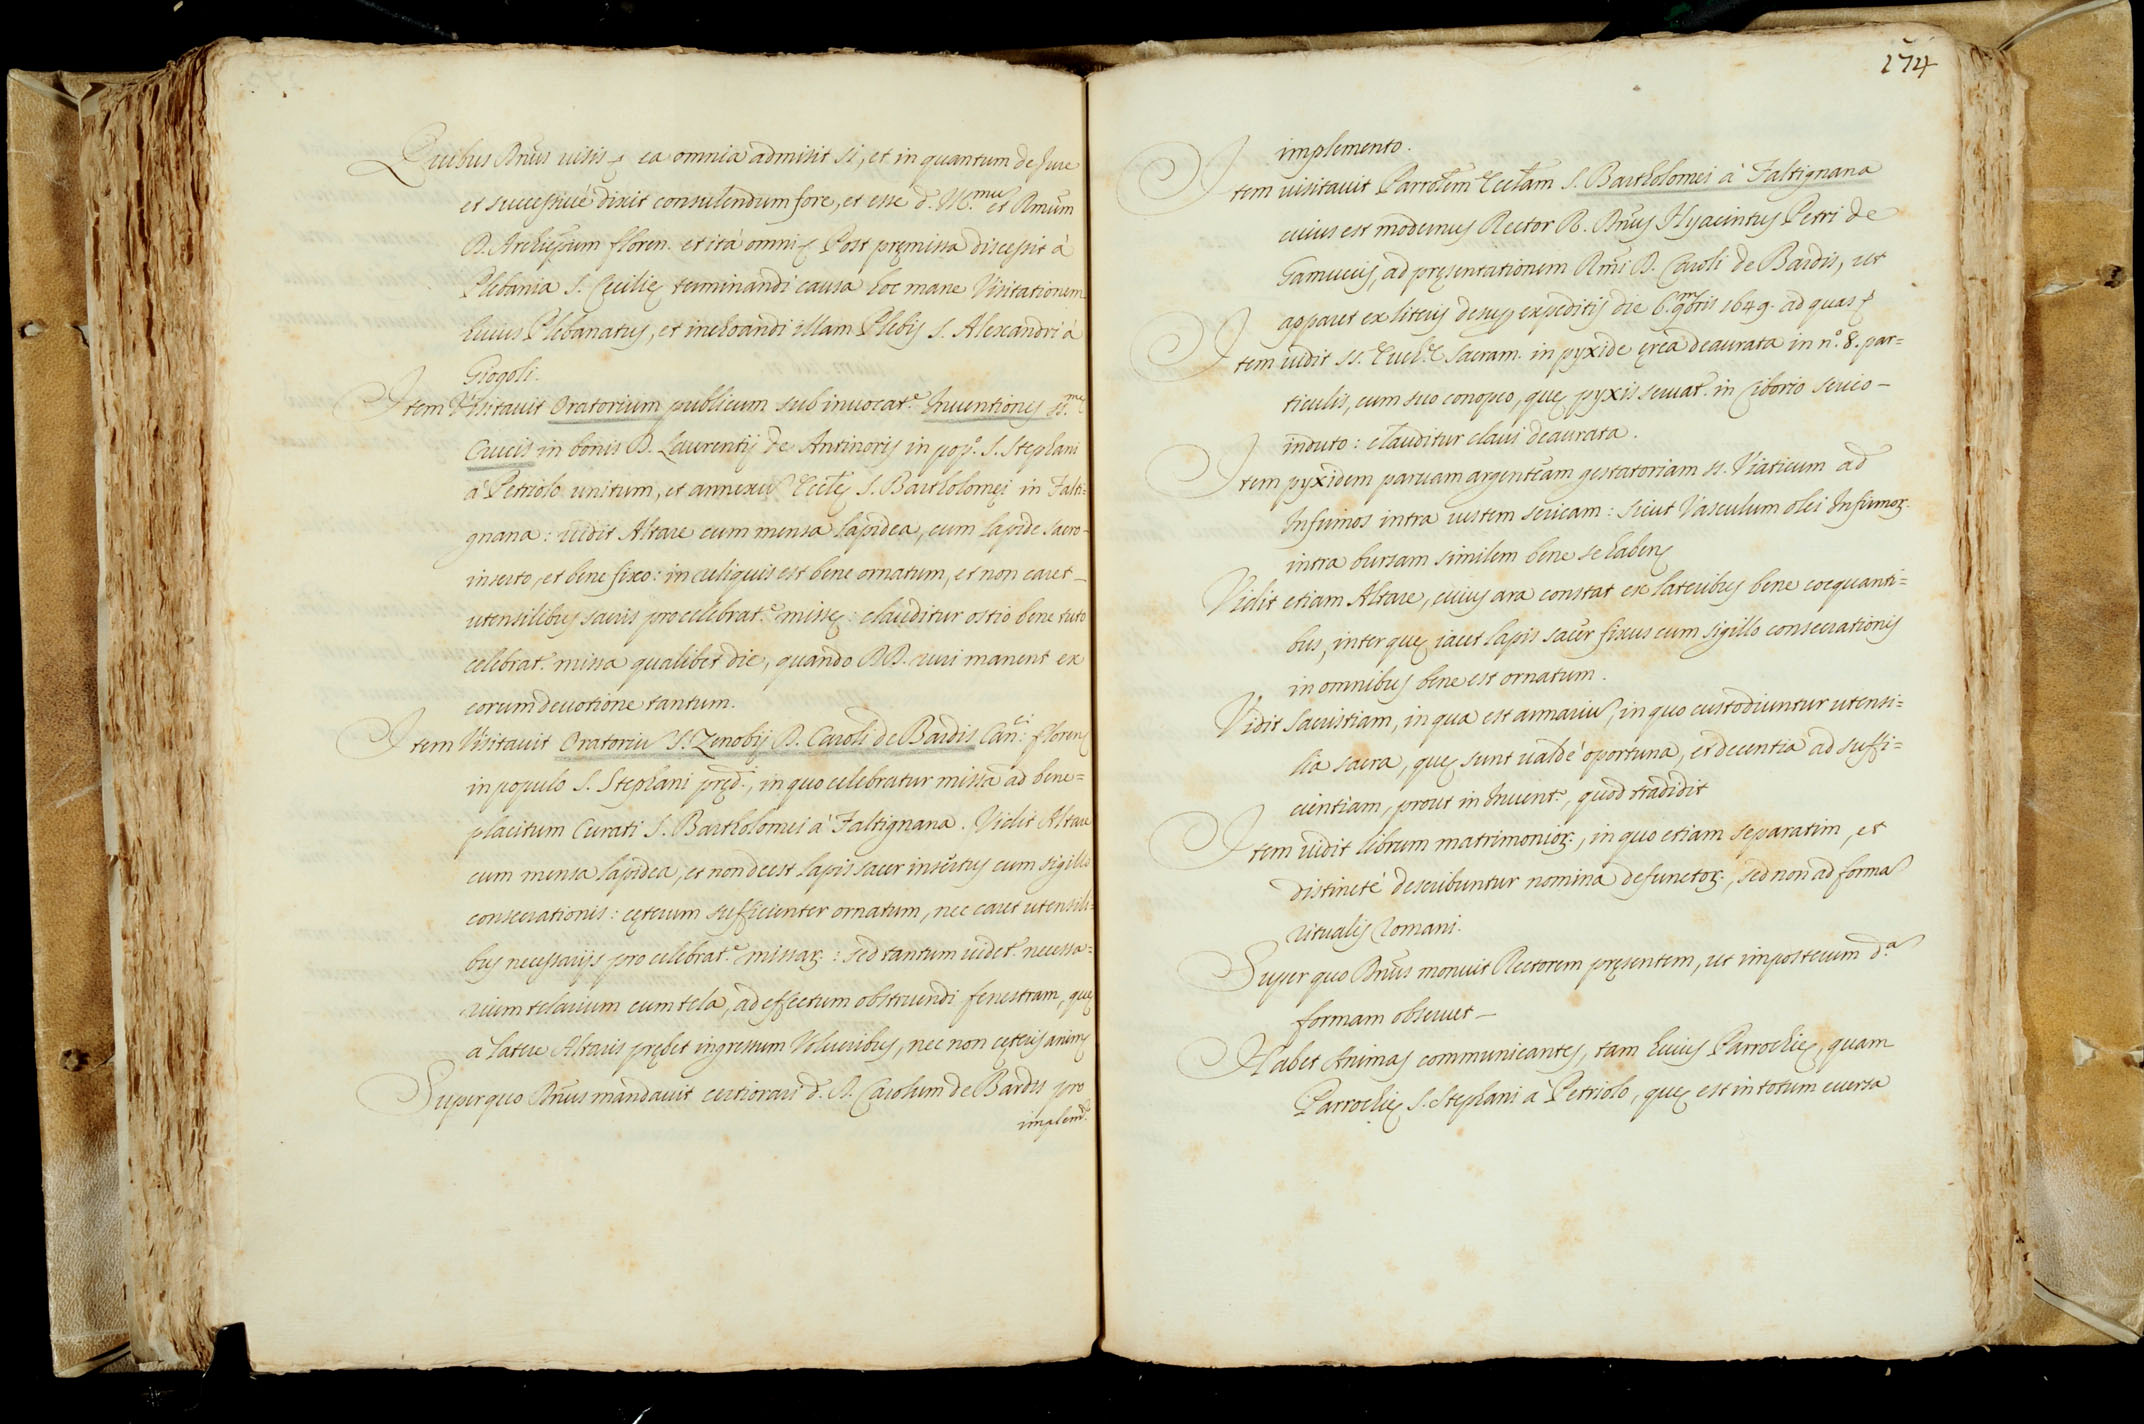 Quibus Dnus visis & ea omnia admisit si, et in quantum de Jure
et successivè dixit consulendum fore, et esse d. Ill.mu et Rmum
D. Archiepum floren. et ità omni Post pręmissa discessit à
Plebania S. Cęcilię terminandi causa hoc mane Visitationem
huius Plebanatus, et inchoandi illam Plebis S. Alexandri à
Giogoli.
Item Visitavit Oratorium publicum sub invocat.e Inventionis ss.me
Crucis in bonis D. Laurentij de Antinoris in pop.o S. Stephani
à Petriolo unitum, et annexu Eccle S. Bartholomei in Falti=
gnana: vidit Altare cum mensa lapidea, cum lapide sacro
inserto, et bene fixo: in reliquis est bene ornatum, et non caret
utensilibus sacris pro celebrat.e missę: clauditur ostio bene tuto
celebrat. missa qualibet die, quando DD. ruri manent ex
eorum devotione tantum.
Item Visitavit Oratoriu S. Zenobij D. Caroli de Bardis Can.ci floren
in populo S. Stephani pręd.i, in quo celebratur missa ad bene=
placitum Curati S. Bartholomei à Faltignana. Vidit Altare
cum mensa lapidea, et non deest lapis sacer insertus cum sigillo
consecrationis: cęterum sufficienter ornatum, nec caret utensili=
bus necessarijs pro celebrat.e missar.: sed tantum videt. necessa=
rium telarium cum tela, ad effectum obstruendi fenestram, que
a latere Altaris prębet ingressum Volucribus, nec non cęteris anim
Super quo Dnus mandavit certiorari d. D. Carolum de Bardis pro
implem.o
174
implemento.
Item visitavit Parrolem Ecclam S. Bartholomei à Faltignana
cuius est modernus Rector R. Dnus Hyacintus Petri de
Gamuccis, ad pręsentationem Rmi D. Caroli de Bardis, ut
apparet ex literis desup expeditis die 6. 9mbris 1649. ad quas &
Item vidit ss. Euch.e Sacram. in pyxide ęrea deaurata in n.o 8. par=
ticulis, cum suo conopeo, que pyxis servat. in Ciborio serico
induto: clauditur clavi deaurata.
Item pyxidem parvam argenteam gestatoriam ss. Viaticum ad
Infirmos intra vestem sericam: sicut Vasculum olei Infirmor.
intra bursam similem bene se habens
Vidit etiam Altare, cuius ara constat ex lateribus bene coequanti=
bus, inter ques iacet lapis sacer fixus cum sigillo consecrationis
in omnibus bene est ornatum.
Vidit Sacristiam, in qua est armariu, in quo custodiuntur utensi=
lia sacra, que sunt valdè oportuna, et decentia ad suffi=
cientiam, prout in Invent.o, quod tradidit
Item vidit librum matrimonior., in quo etiam separatim, et
distinctè describuntur nomina defunctor., sed non ad forma
ritualis Romani.
Super quo Dnus monuit Rectorem pręsentem, ut imposterum d.a
formam observet
Habet Animas communicantes, tam huius Parrochię, quam
Parrochię S. Stephani à Petriolo, que est in totum eversa